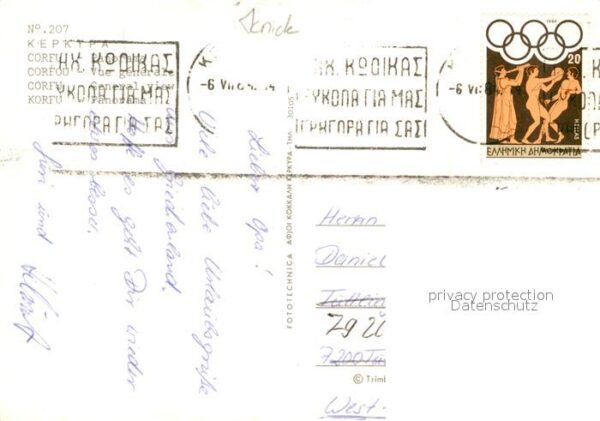 Nº. 207
ΚΕΡΚΥΡΑ
CORFU
CORFOU Vue generale
CORFU General view
KORFU Panorama
ΑΧ. ΚΩΔΙΚΑΣ
ΕΥΚΟΛΑ ΓΙΑ ΜΑΣ
ΓΡΗΓΟΡΑ ΓΙΑ ΣΑΣ!
-6 VII 84
ΑΧ. ΚΩΔΙΚΑΣ
ΕΥΚΟΛΑ ΓΙΑ ΜΑΣ
ΓΡΗΓΟΡΑ ΓΙΑ ΣΑΣ!
-6 VII 84
1984
20
HELLAS
ΕΛΛΗΝΙΚΗ ΔΗΜΟΚΡΑΤΙΑ
Lieber Opa!
Viele liebe Urlaubsgrüße
Griechenland.
es geht Dir wieder
besser.
und
FOTOTECHNICA ΑΦΟΙ ΚΟΚΚΑΛΗ ΚΕΡΚΥΡΑ ΤΗΛ. 30105
Herrn
Daniel
79 U
7200 Tu
West-
© Triml
privacy protection
Datenschutz